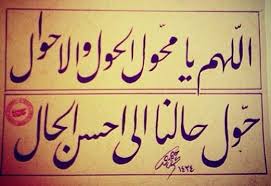 اللهم یا محول الحول و الاحوال
حوّل حالنا الی احسن الحال
۱۴۳۴